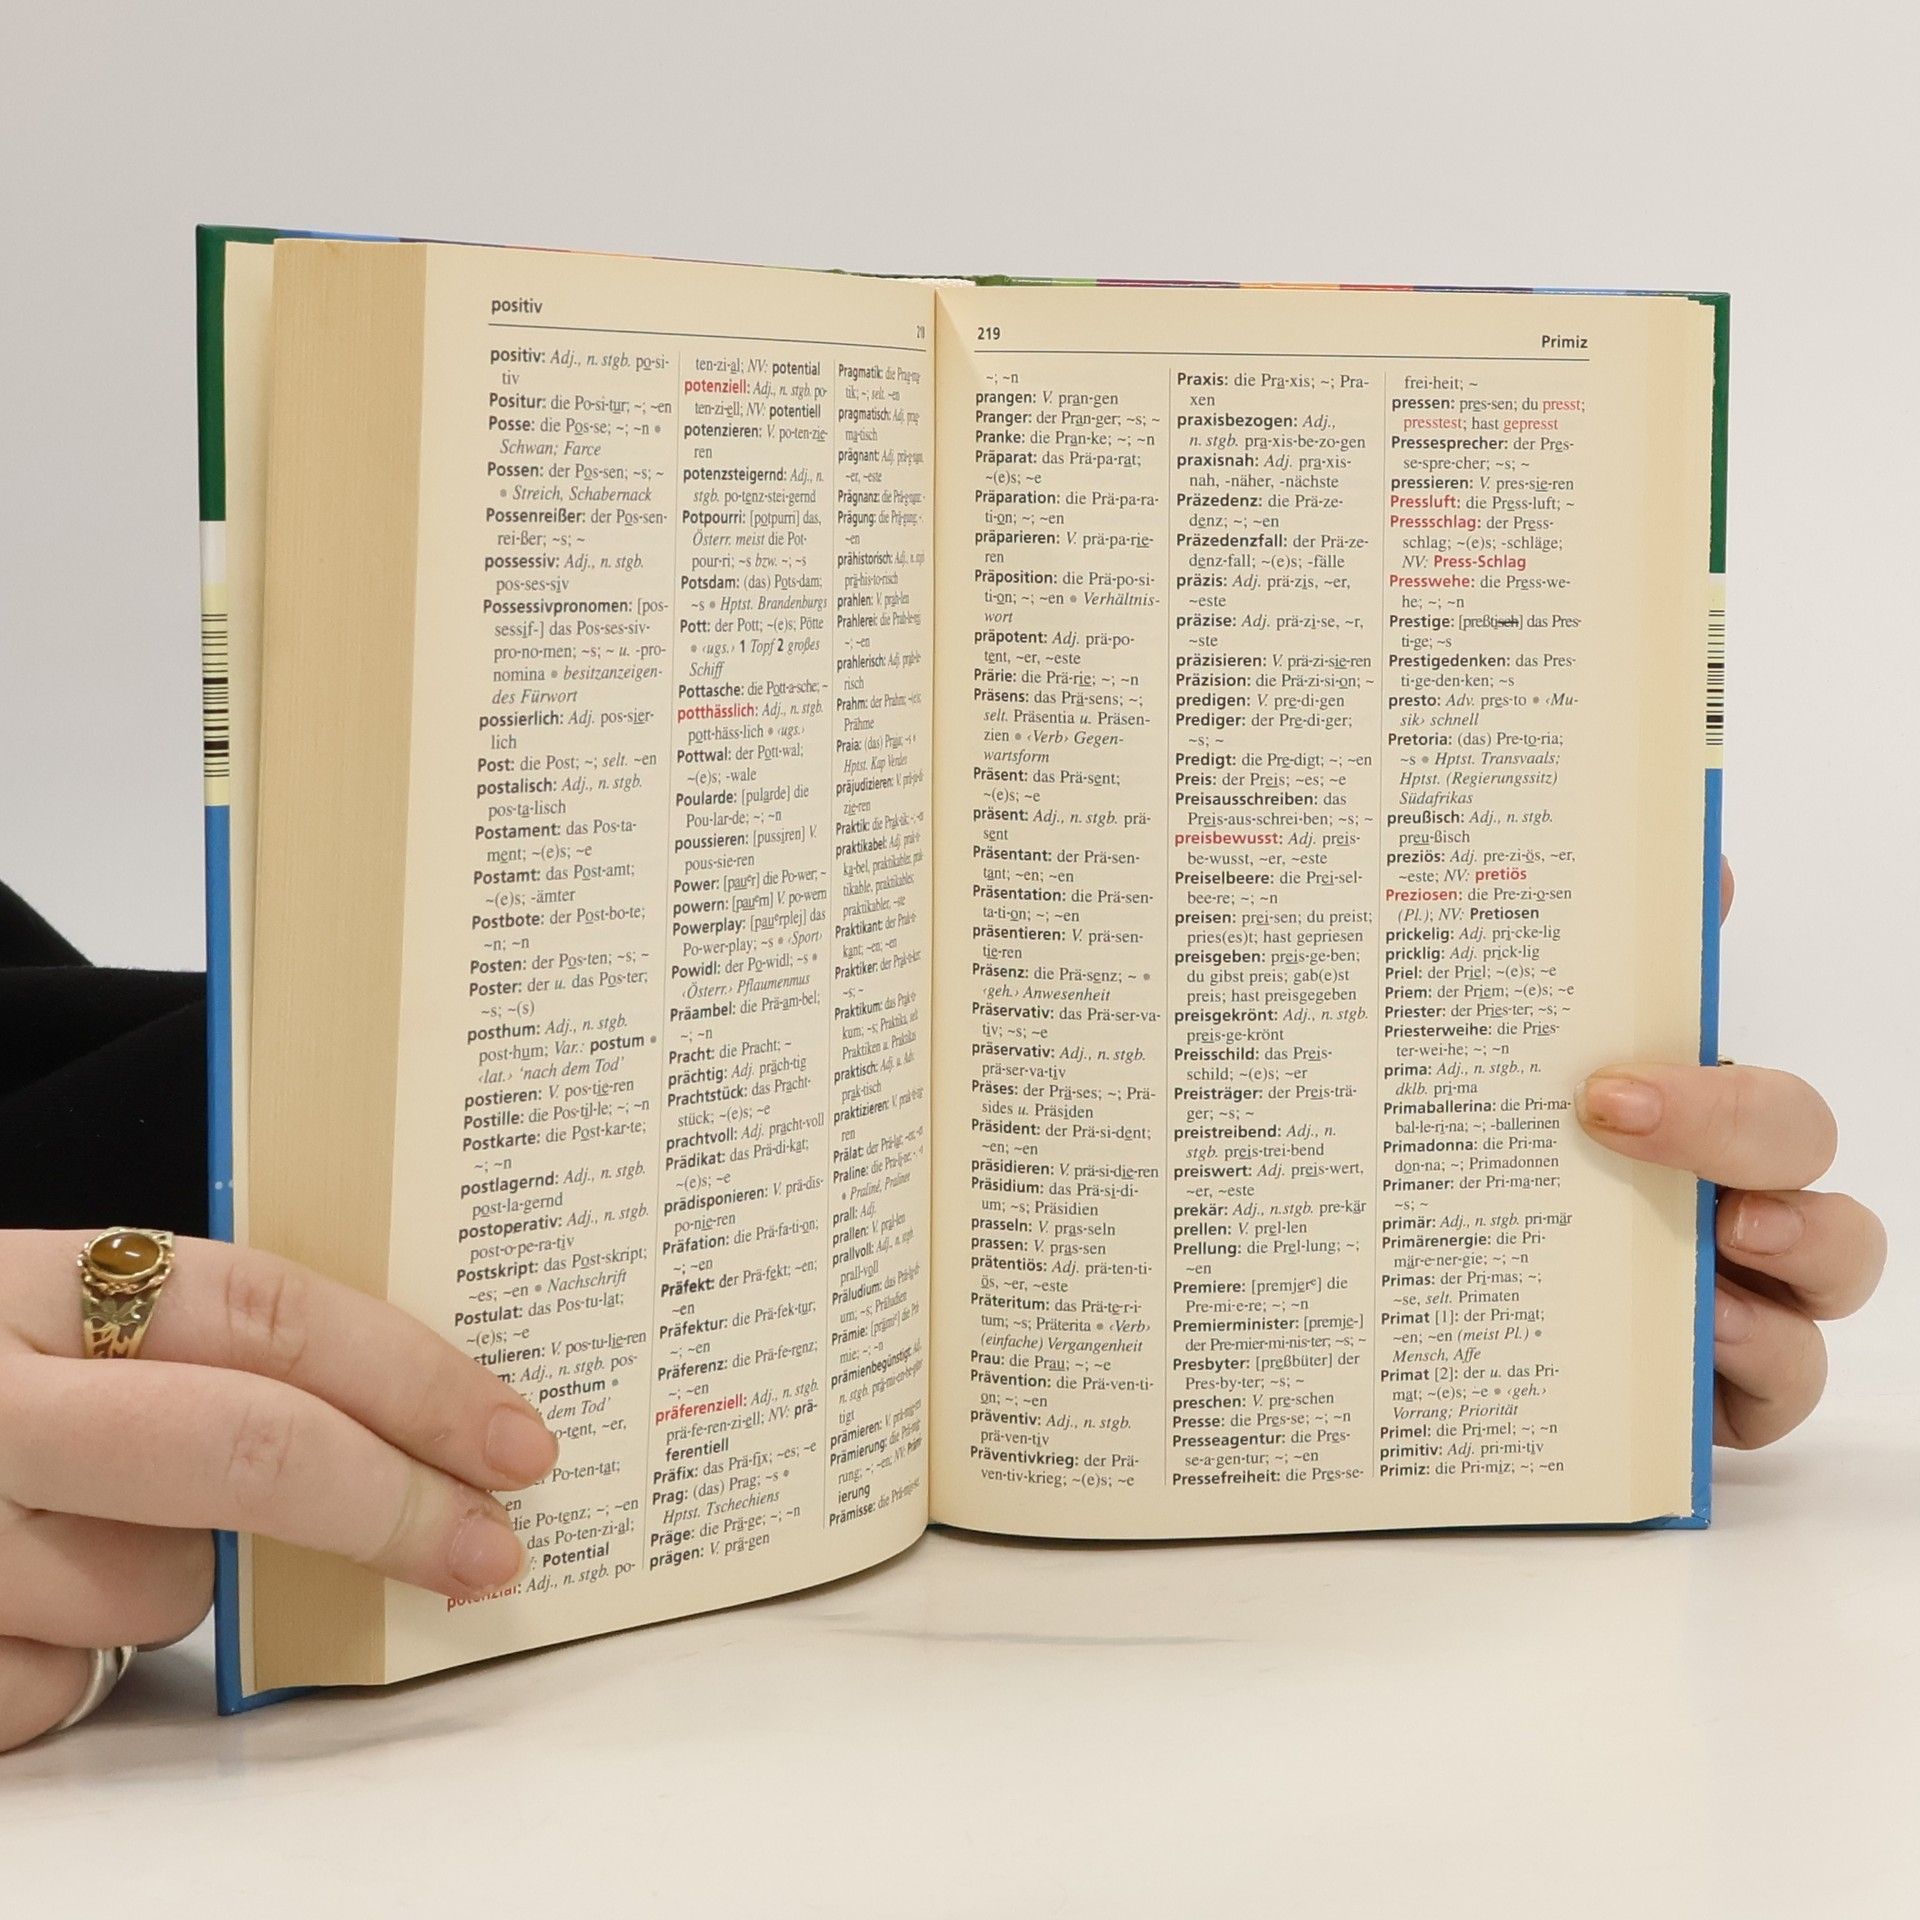 positiv
positiv: Adj., n. stgb. po-si-
tiv
Positur: die Po-si-tur; ~; ~en
Posse: die Pos-se; ~; ~n •
Schwan; Farce
Possen: der Pos-sen; ~s; ~
• Streich, Schabernack
Possenreißer: der Pos-sen-
rei-ßer; ~s; ~
possessiv: Adj., n. stgb.
pos-ses-siv
Possessivpronomen: [pos-
sessif-] das Pos-ses-siv-
pro-no-men; ~s; ~ u. -pro-
nomina • besitzanzeigen-
des Fürwort
possierlich: Adj. pos-sier-
lich
Post: die Post; ~; selt. ~en
postalisch: Adj., n. stgb.
pos-ta-lisch
Postament: das Pos-ta-
ment; ~(e)s; ~e
Postamt: das Post-amt;
~(e)s; -ämter
Postbote: der Post-bo-te;
~n; ~n
Posten: der Pos-ten; ~s; ~
Poster: der u. das Pos-ter;
~s; ~(s)
posthum: Adj., n. stgb.
post-hum; Var.: postum •
‹lat.› 'nach dem Tod'
postieren: V. pos-tie-ren
Postille: die Pos-til-le; ~; ~n
Postkarte: die Post-kar-te;
~; ~n
postlagernd: Adj., n. stgb.
post-la-gernd
postoperativ: Adj., n. stgb.
post-o-pe-ra-tiv
Postskript: das Post-skript;
~es; ~en • Nachschrift
Postulat: das Pos-tu-lat;
~(e)s; ~e
V. pos-tu-lie-ren
Adj., n. stgb. pos-
posthum •
dem Tod'
~er,
Po-ten-tat;
die Po-tenz; ~; ~en
das Po-ten-zi-al;
Potential
Adj., n. stgb. po-
ten-zi-al; NV: potential
potenziell: Adj., n. stgb. po-
ten-zi-ell; NV: potentiell
potenzieren: V. po-ten-zie-
ren
potenzsteigernd: Adj., n.
stgb. po-tenz-stei-gernd
Potpourri: [potpurri] das,
Österr. meist die Pot-
pour-ri; ~s bzw. ~; ~s
Potsdam: (das) Pots-dam;
~s • Hptst. Brandenburgs
Pott: der Pott; ~(e)s; Pötte
• ‹ugs.› 1 Topf 2 großes
Schiff
Pottasche: die Pott-a-sche; ~
potthässlich: Adj., n. stgb.
pott-häss-lich • ‹ugs.›
Pottwal: der Pott-wal;
~(e)s; -wale
Poularde: [pularde] die
Pou-lar-de; ~; ~n
poussieren: [pussiren] V.
pous-sie-ren
Power: [pauer] die Po-wer; ~
powern: [pauern] V. po-wern
Powerplay: [pauerplej] das
Po-wer-play; ~s • ‹Sport›
Powidl: der Po-widl; ~s •
‹Österr.› Pflaumenmus
Präambel: die Prä-am-bel;
~; ~n
Pracht: die Pracht; ~
prächtig: Adj. präch-tig
Prachtstück: das Pracht-
stück; ~(e)s; ~e
prachtvoll: Adj. pracht-voll
Prädikat: das Prä-di-kat;
~(e)s; ~e
prädisponieren: V. prä-dis-
po-nie-ren
Präfation: die Prä-fa-ti-on;
~; ~en
Präfekt: der Prä-fekt; ~en;
~en
Präfektur: die Prä-fek-tur;
~; ~en
Präferenz: die Prä-fe-renz;
~; ~en
präferenziell: Adj., n. stgb.
prä-fe-ren-zi-ell; NV: prä-
ferentiell
Präfix: das Prä-fix; ~es; ~e
Prag: (das) Prag; ~s •
Hptst. Tschechiens
Präge: die Prä-ge; ~; ~n
prägen: V. prä-gen
Pragmatik: die Prag-ma-
tik; ~; selt. ~en
pragmatisch: Adj. prag-
ma-tisch
prägnant: Adj. präg-nant,
~er, ~este
Prägnanz: die Präg-nanz; ~
Prägung: die Prä-gung; ~;
~en
prähistorisch: Adj., n. stgb.
prä-his-to-risch
prahlen: V. prah-len
Prahlerei: die Prah-le-rei;
~; ~en
prahlerisch: Adj. prah-le-
risch
Prahm: der Prahm; ~(e)s;
Prähme
Praia: (das) Praia; ~s •
Hptst. Kap Verdes
präjudizieren: V. prä-ju-di-
zie-ren
Praktik: die Prak-tik; ~; ~en
praktikabel: Adj. prak-ti-
ka-bel, praktikabler, prak-
tikable, praktikables;
praktikabler, ~ste
Praktikant: der Prak-ti-
kant; ~en; ~en
Praktiker: der Prak-ti-ker;
~s; ~
Praktikum: das Prak-ti-
kum; ~s; Praktika, selt.
Praktiken u. Praktikas
praktisch: Adj. u. Adv.
prak-tisch
praktizieren: V. prak-ti-zie-
ren
Prälat: der Prä-lat; ~en; ~en
Praline: die Pra-li-ne; ~; ~n
• Praliné, Pralinee
prall: Adj.
prallen: V. pral-len
prallvoll: Adj., n. stgb.
prall-voll
Präludium: das Prä-lu-di-
um; ~s; Präludien
Prämie: [prämie] die Prä-
mie; ~; ~n
prämienbegünstigt: Adj.,
n. stgb. prä-mi-en-be-güns-
tigt
prämieren: V. prä-mie-ren
Prämierung: die Prä-mie-
rung; ~; ~en; NV: Präm-
ierung
Prämisse: die Prä-mis-se;
219
Primiz
~; ~n
prangen: V. pran-gen
Pranger: der Pran-ger; ~s; ~
Pranke: die Pran-ke; ~; ~n
Präparat: das Prä-pa-rat;
~(e)s; ~e
Präparation: die Prä-pa-ra-
ti-on; ~; ~en
präparieren: V. prä-pa-rie-
ren
Präposition: die Prä-po-si-
ti-on; ~; ~en • Verhältnis-
wort
präpotent: Adj. prä-po-
tent, ~er, ~este
Prärie: die Prä-rie; ~; ~n
Präsens: das Prä-sens; ~;
selt. Präsentia u. Präsen-
zien • ‹Verb› Gegen-
wartsform
Präsent: das Prä-sent;
~(e)s; ~e
präsent: Adj., n. stgb. prä-
sent
Präsentant: der Prä-sen-
tant; ~en; ~en
Präsentation: die Prä-sen-
ta-ti-on; ~; ~en
präsentieren: V. prä-sen-
tie-ren
Präsenz: die Prä-senz; ~ •
‹geh.› Anwesenheit
Präservativ: das Prä-ser-va-
tiv; ~s; ~e
präservativ: Adj., n. stgb.
prä-ser-va-tiv
Präses: der Prä-ses; ~; Prä-
sides u. Präsiden
Präsident: der Prä-si-dent;
~en; ~en
präsidieren: V. prä-si-die-ren
Präsidium: das Prä-si-di-
um; ~s; Präsidien
prasseln: V. pras-seln
prassen: V. pras-sen
prätentiös: Adj. prä-ten-ti-
ös, ~er, ~este
Präteritum: das Prä-te-ri-
tum; ~s; Präterita • ‹Verb›
(einfache) Vergangenheit
Prau: die Prau; ~; ~e
Prävention: die Prä-ven-ti-
on; ~; ~en
präventiv: Adj., n. stgb.
prä-ven-tiv
Präventivkrieg: der Prä-
ven-tiv-krieg; ~(e)s; ~e
Praxis: die Pra-xis; ~; Pra-
xen
praxisbezogen: Adj.,
n. stgb. pra-xis-be-zo-gen
praxisnah: Adj. pra-xis-
nah, -näher, -nächste
Präzedenz: die Prä-ze-
denz; ~; ~en
Präzedenzfall: der Prä-ze-
denz-fall; ~(e)s; -fälle
präzis: Adj. prä-zis, ~er,
~este
präzise: Adj. prä-zi-se, ~r,
~ste
präzisieren: V. prä-zi-sie-ren
Präzision: die Prä-zi-si-on; ~
predigen: V. pre-di-gen
Prediger: der Pre-di-ger;
~s; ~
Predigt: die Pre-digt; ~; ~en
Preis: der Preis; ~es; ~e
Preisausschreiben: das
Preis-aus-schrei-ben; ~s; ~
preisbewusst: Adj. preis-
be-wusst, ~er, ~este
Preiselbeere: die Prei-sel-
bee-re; ~; ~n
preisen: prei-sen; du preist;
pries(es)t; hast gepriesen
preisgeben: preis-ge-ben;
du gibst preis; gab(e)st
preis; hast preisgegeben
preisgekrönt: Adj., n. stgb.
preis-ge-krönt
Preisschild: das Preis-
schild; ~(e)s; ~er
Preisträger: der Preis-trä-
ger; ~s; ~
preistreibend: Adj., n.
stgb. preis-trei-bend
preiswert: Adj. preis-wert,
~er, ~este
prekär: Adj., n.stgb. pre-kär
prellen: V. prel-len
Prellung: die Prel-lung; ~;
~en
Premiere: [premjere] die
Pre-mi-e-re; ~; ~n
Premierminister: [premje-]
der Pre-mier-mi-nis-ter; ~s; ~
Presbyter: [preßbüter] der
Pres-by-ter; ~s; ~
preschen: V. pre-schen
Presse: die Pres-se; ~; ~n
Presseagentur: die Pres-
se-a-gen-tur; ~; ~en
Pressefreiheit: die Pres-se-
frei-heit; ~
pressen: pres-sen; du presst;
presstest; hast gepresst
Pressesprecher: der Pres-
se-spre-cher; ~s; ~
pressieren: V. pres-sie-ren
Pressluft: die Press-luft; ~
Pressschlag: der Press-
schlag; ~(e)s; -schläge;
NV: Press-Schlag
Presswehe: die Press-we-
he; ~; ~n
Prestige: [preßtisch] das Pres-
ti-ge; ~s
Prestigedenken: das Pres-
ti-ge-den-ken; ~s
presto: Adv. pres-to • ‹Mu-
sik› schnell
Pretoria: (das) Pre-to-ria;
~s • Hptst. Transvaals;
Hptst. (Regierungssitz)
Südafrikas
preußisch: Adj., n. stgb.
preu-ßisch
preziös: Adj. pre-zi-ös, ~er,
~este; NV: pretiös
Preziosen: die Pre-zi-o-sen
(Pl.); NV: Pretiosen
prickelig: Adj. pri-cke-lig
pricklig: Adj. prick-lig
Priel: der Priel; ~(e)s; ~e
Priem: der Priem; ~(e)s; ~e
Priester: der Pries-ter; ~s; ~
Priesterweihe: die Pries-
ter-wei-he; ~; ~n
prima: Adj., n. stgb., n.
dklb. pri-ma
Primaballerina: die Pri-ma-
bal-le-ri-na; ~; -ballerinen
Primadonna: die Pri-ma-
don-na; ~; Primadonnen
Primaner: der Pri-ma-ner;
~s; ~
primär: Adj., n. stgb. pri-mär
Primärenergie: die Pri-
mär-e-ner-gie; ~; ~n
Primas: der Pri-mas; ~;
~se, selt. Primaten
Primat [1]: der Pri-mat;
~en; ~en (meist Pl.) •
Mensch, Affe
Primat [2]: der u. das Pri-
mat; ~(e)s; ~e • ‹geh.›
Vorrang; Priorität
Primel: die Pri-mel; ~; ~n
primitiv: Adj. pri-mi-tiv
Primiz: die Pri-miz; ~; ~en